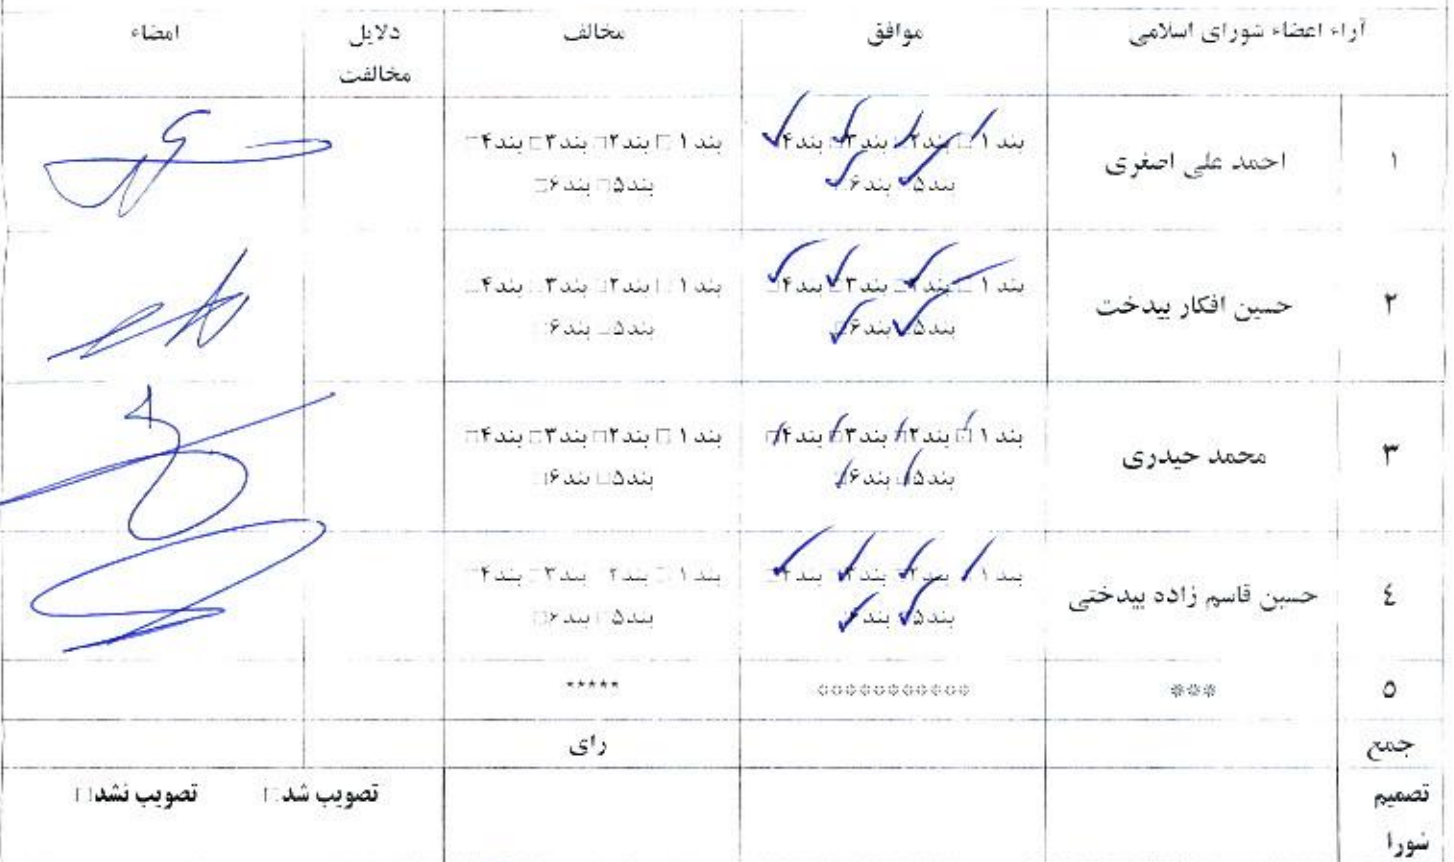 آراء اعضاء شورای اسلامی موافق مخالف دلایل مخالفت امضاء
۱ احمد علی اصغری بند ۱ □ بند۲ □ بند۳ □ بند۴ □ بند ۱ □ بند۲ □ بند۳ □ بند۴ □
بند۵ □ بند۶ □ بند۵ □ بند۶ □
۲ حسین افکار بیدخت بند ۱ □ بند۲ □ بند۳ □ بند۴ □ بند ۱ □ بند۲ □ بند۳ □ بند۴ □
بند۵ □ بند۶ □ بند۵ □ بند۶ □
۳ محمد حیدری بند ۱ □ بند۲ □ بند۳ □ بند۴ □ بند ۱ □ بند۲ □ بند۳ □ بند۴ □
بند۵ □ بند۶ □ بند۵ □ بند۶ □
٤ حسین قاسم زاده بیدختی بند ۱ □ بند۲ □ بند۳ □ بند۴ □ بند ۱ □ بند۲ □ بند۳ □ بند۴ □
بند۵ □ بند۶ □ بند۵ □ بند۶ □
۵ *** *********** *****
جمع رای
تصمیم شورا تصویب شد □ تصویب نشد □